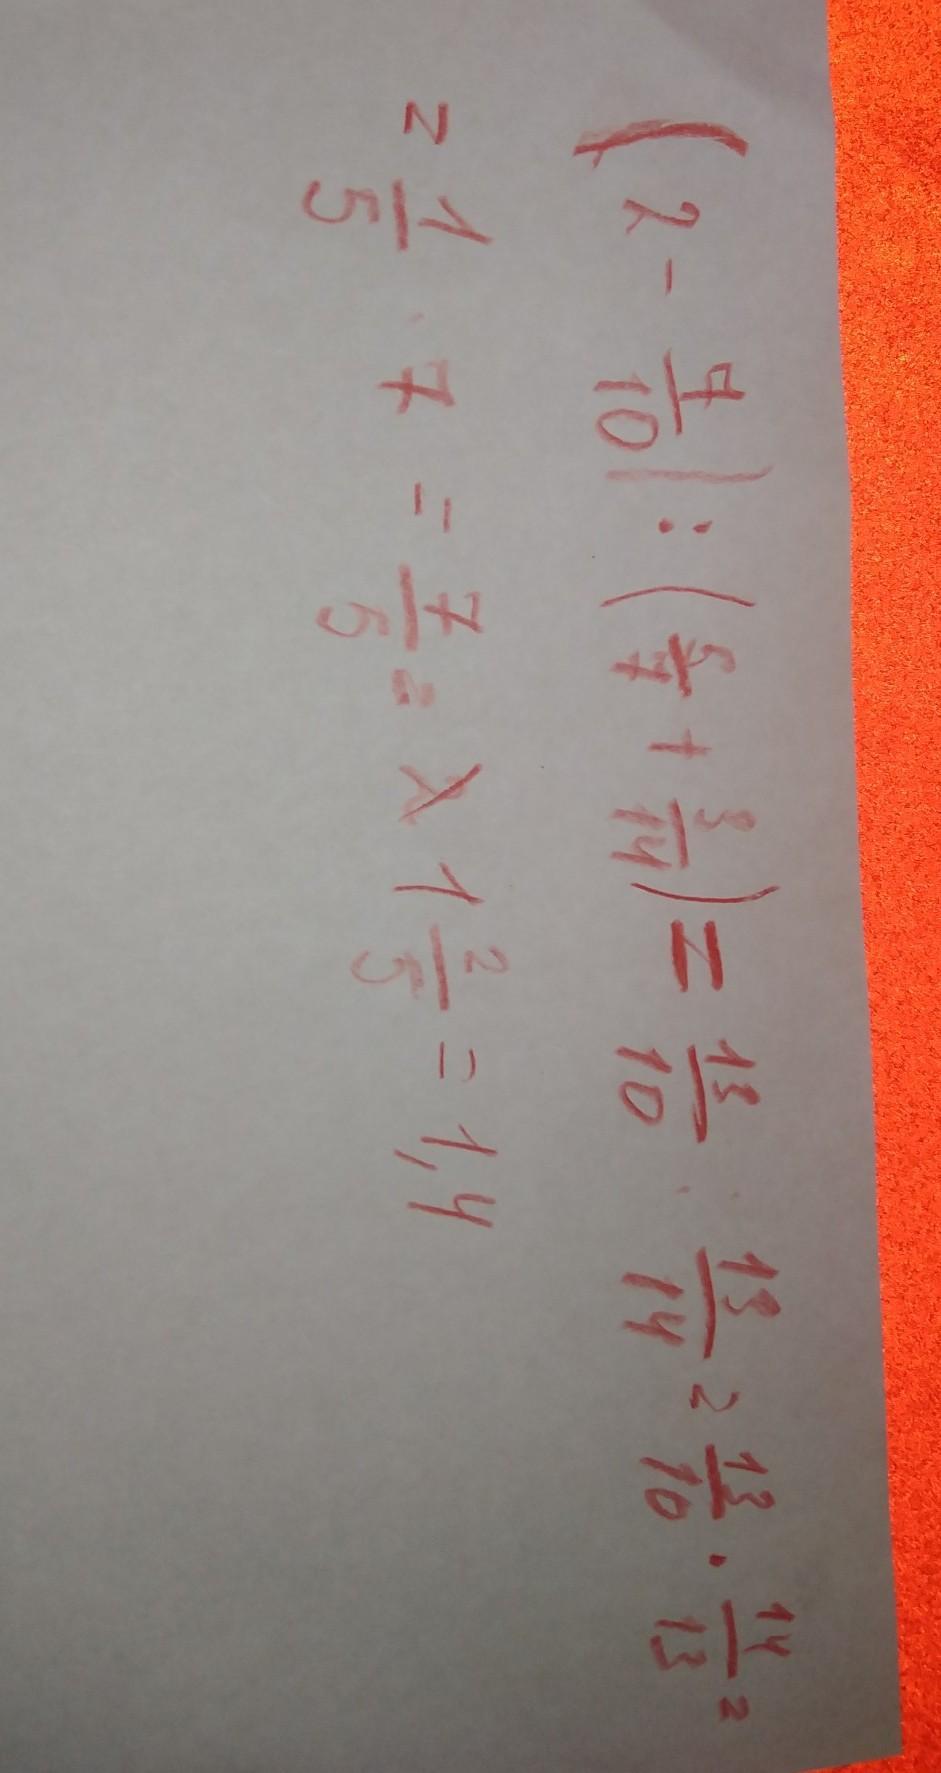 (2 - 7/10) : (5/7 + 3/14) = 13/10 : 13/14 = 13/10 · 14/13 =
= 1/5 · 7 = 7/5 = 1 2/5 = 1,4